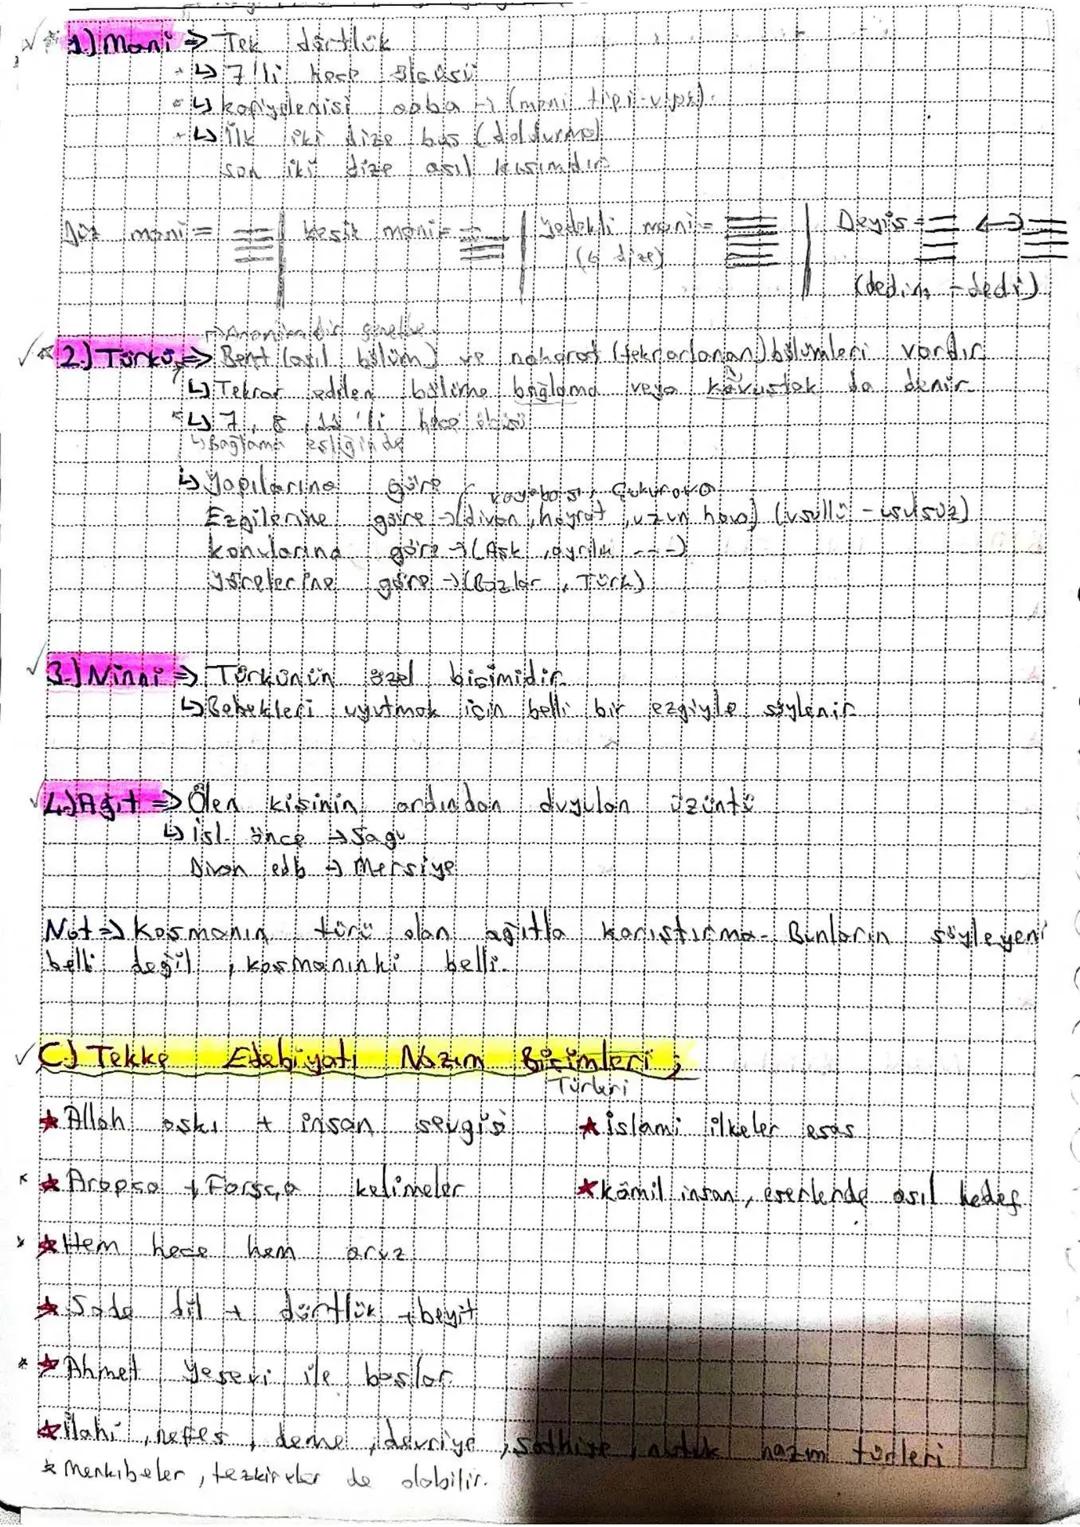 1.) Mani ⇒ Tek dörtlük
↳ 7'li hece ölçüsü
↳ kafiyelenişi aaba → (mani tipi uyak)
↳ İlk iki dize boş (doldurma)
son iki dize asıl kısımdır.
Düz mani = kesik mani = Yedekli mani = Deyiş =
(6 dize)
(dedim - dedi)
→ Anonimdir genelde.
2.) Türkü ⇒ Bent (asıl bölüm) ve nakarat (tekrarlanan) bölümleri vardır
↳ Tekrar edilen bölüme bağlama veya kavuştak da denir
↳ 7, 8, 11'li hece ölçüsü
↳ Bağlama eşliğinde
↳ Yapılarına göre
Çukurova
Ezgilerine göre → (divan, hoyrat, uzun hava) (usullü - usulsüz)
konularına göre → (Aşk, ayrılık ---)
Yörelerine göre → (Bozlar, Türk)
3.) Ninni ⇒ Türkünün özel biçimidir.
↳ Bebekleri uyutmak için belli bir ezgiyle söylenir
4.) Ağıt ⇒ Ölen kişinin ardından duyulan üzüntü
↳ İsl. önce → Sagu
Divan edb → Mersiye
Not ⇒ Koşmanın türü olan ağıtla karıştırma. Bunların söyleyeni
belli değil, koşmanınki belli.
C) Tekke Edebiyatı Nazım Biçimleri ;
Türleri
★ Allah aşkı + insan sevgisi ★ İslami ilkeler esas
★ Arapça + Farsça kelimeler ★ kâmil insan, eserlerde asıl hedef
★ Hem hece hem aruz
★ Sade dil + dörtlük + beyit
★ Ahmet Yesevi ile başlar
★ İlahi, nefes, deme, devriye, şathiye, nutuk nazım türleri
* Menkıbeler, tezkireler de olabilir.